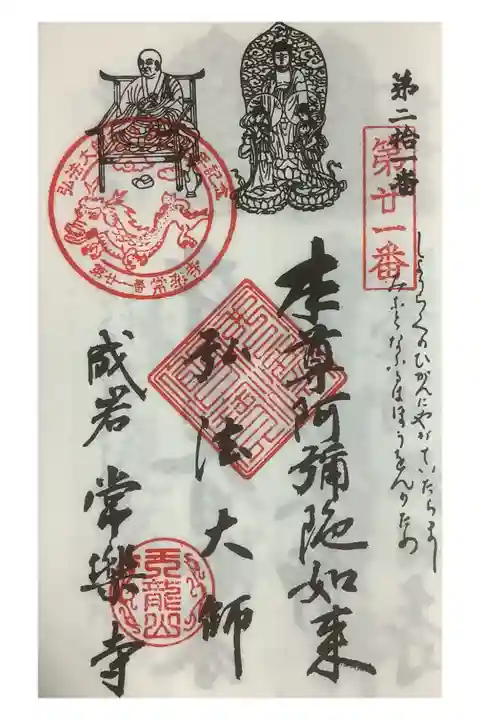 第二拾一番
第廿一番
しょうらくのひがんにやがていたらまし
みなとなふるはほうをんのため
本尊阿彌陀如来
弘法大師
成岩 常樂寺
弘法大
記念
第廿一番常楽寺
天龍山